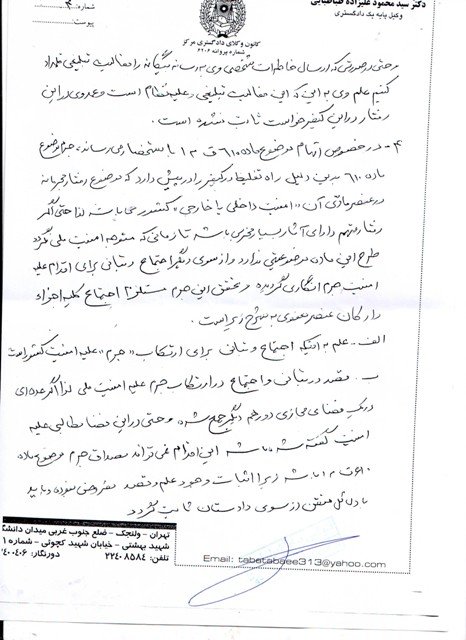 دکتر سید محمود علیزاده طباطبایی
وکیل پایه یک دادگستری
شماره:
پیوست:
کانون وکلای دادگستری مرکز
شماره پروانه ۶۲۰۶
و حتی در صورتی که ارسال خاطرات شخصی وی به رسانه بیگانه را فعالیت تبلیغی قلمداد
کنیم علم وی به این که این فعالیت تبلیغی و علیه نظام است و عمدی در این
رفتار در این کیفرخواست ثابت نشده است.
۴- در خصوص اتهام موضوع ماده ۶۱۰ ق م ا با استحضار می رساند، جرم موضوع
ماده ۶۱۰ به این دلیل راه تغلیظ در کیفر را در پیش دارد که موضوع رفتار مجرمانه
در عنصر مادی آن «امنیت داخلی یا خارجی» کشور می باشد لذا حتی اگر
رفتار متهم دارای آثار بسیار مخربی باشد تا زمانی که متوجه امنیت ملی نگردد
طرح این ماده موضوعیتی ندارد و از سوی دیگر اجتماع و تبانی برای اقدام علیه
امنیت جرم انگاری گردیده و تحقق این جرم مستلزم اجتماع کلیه اجزاء
و ارکان عنصر معنوی به شرح زیر است.
الف- علم به اینکه اجتماع و تبانی برای ارتکاب «جرم» علیه امنیت کشور است
ب- قصد در تبانی و اجتماع در ارتکاب جرم علیه امنیت ملی لذا اگر عده ای
در یک فضای مجازی دور هم دیگر جمع شده و حتی در این فضا مطالبی علیه
امنیت گفته شده باشد این اقدام نمی تواند مصداق جرم موضوع ماده
۶۱۰ باشد زیرا اثبات وجود علم و قصد مفروض نبوده و باید
با دلائل متقن از سوی دادستان ثابت گردد
تهران - ولنجک - ضلع جنوب غربی میدان دانشگاه
شهید بهشتی - خیابان شهید کچوئی - شماره ۱
تلفن: ۲۲۴۰۸۵۸۴ دورنگار: ۲۲۴۰۰۴۰۶
Email: tabatabaee313@yahoo.com